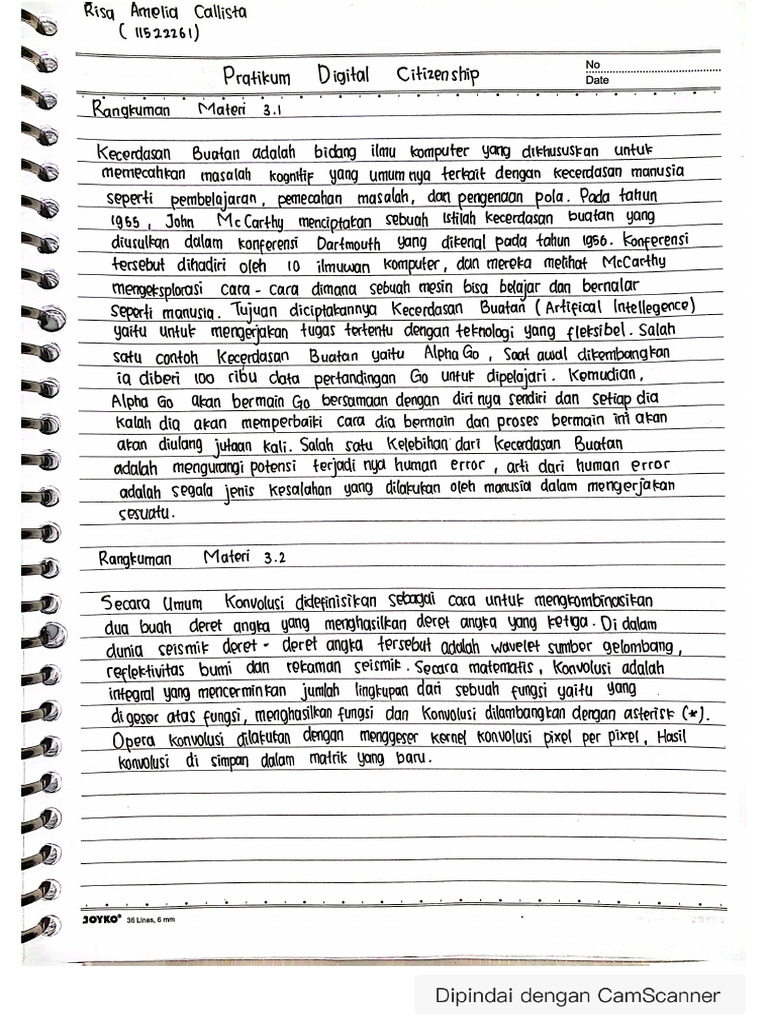 Risa Amelia Callista
( 11522261 )
No
Pratikum Digital Citizenship
Date
Rangkuman Materi 3.1
Kecerdasan Buatan adalah bidang ilmu komputer yang dikhususkan untuk
memecahkan masalah kognitif yang umum nya terkait dengan kecerdasan manusia
seperti pembelajaran, pemecahan masalah, dan pengenaan pola. Pada tahun
1955, John McCarthy menciptakan sebuah istilah kecerdasan buatan yang
diusulkan dalam konferensi Dartmouth yang dikenal pada tahun 1956. Konferensi
tersebut dihadiri oleh 10 ilmuwan komputer, dan mereka melihat McCarthy
mengeksplorasi cara - cara dimana sebuah mesin bisa belajar dan bernalar
seperti manusia. Tujuan diciptakannya Kecerdasan Buatan (Artifical Intellegence)
yaitu untuk mengerjakan tugas tertentu dengan teknologi yang fleksibel. Salah
satu contoh Kecerdasan Buatan yaitu Alpha Go, Saat awal dikembangkan
ia diberi 100 ribu data pertandingan Go untuk dipelajari. Kemudian,
Alpha Go akan bermain Go bersamaan dengan diri nya sendiri dan setiap dia
kalah dia akan memperbaiki cara dia bermain dan proses bermain ini akan
akan diulang jutaan kali. Salah satu kelebihan dari Kecerdasan Buatan
adalah mengurangi potensi terjadi nya human error, arti dari human error
adalah segala jenis kesalahan yang dilakukan oleh manusia dalam mengerjakan
sesuatu.
Rangkuman Materi 3.2
Secara Umum Konvolusi didefinisikan sebagai cara untuk mengkombinasikan
dua buah deret angka yang menghasilkan deret angka yang ketiga. Di dalam
dunia seismik deret - deret angka tersebut adalah wavelet sumber gelombang,
reflektivitas bumi dan rekaman seismik. Secara matematis, Konvolusi adalah
integral yang mencerminkan jumlah lingkupan dari sebuah fungsi yaitu yang
di geser atas fungsi, menghasilkan fungsi dan Konvolusi dilambangkan dengan asterisk (*).
Opera konvolusi dilakukan dengan menggeser kernel konvolusi pixel per pixel, Hasil
konvolusi di simpan dalam matrik yang baru.
JOYKO® 36 Lines, 6 mm
Dipindai dengan CamScanner